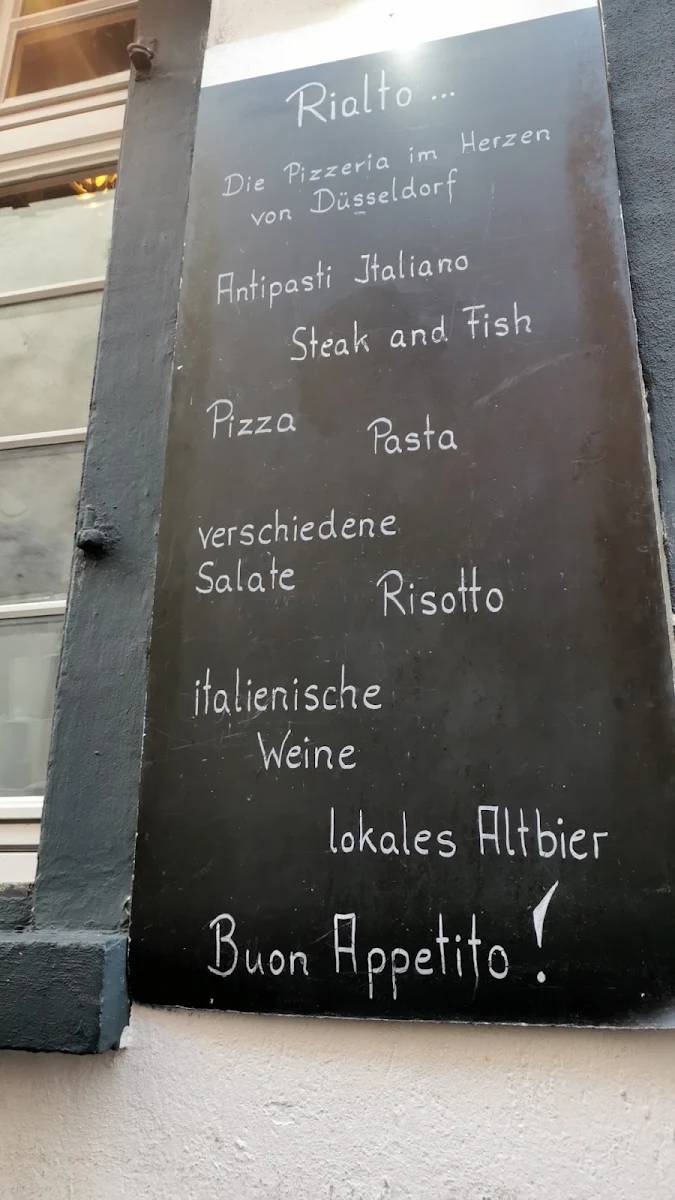 Rialto ...
Die Pizzeria im Herzen
von Düsseldorf
Antipasti Italiano
Steak and Fish
Pizza Pasta
verschiedene
Salate Risotto
italienische
Weine
lokales Altbier
Buon Appetito!